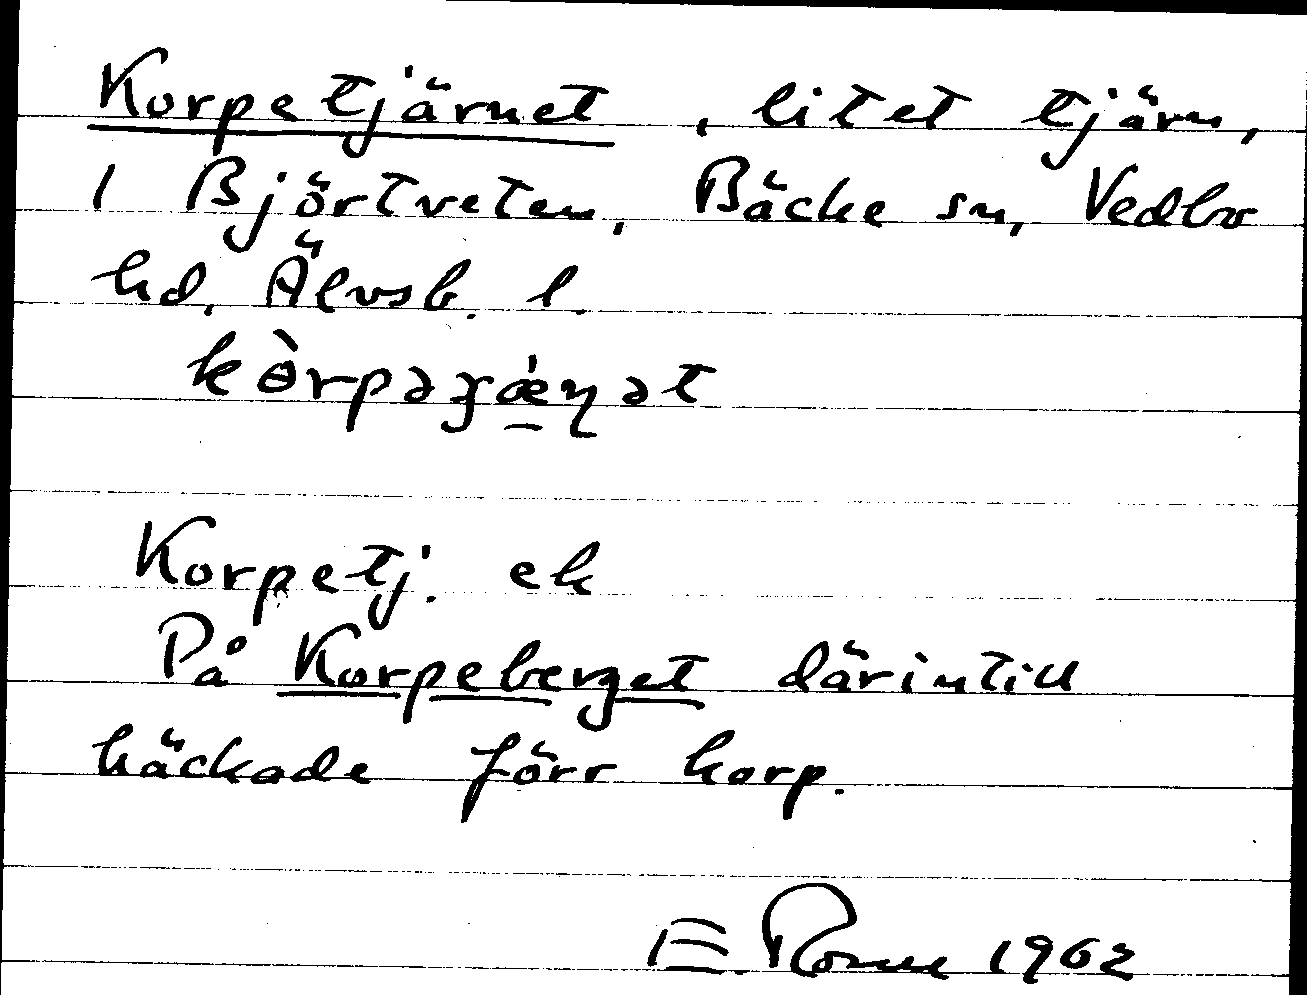 Korpetjärnet, litet tjärn,
i Björtveten, Bäcke sn, Vedbo
hd, Älvsb. l.
kòrpəɟæ̀ṇət
Korpetj. ek
På Korpeberget därintill
häckade förr korp.
E. Rome 1962